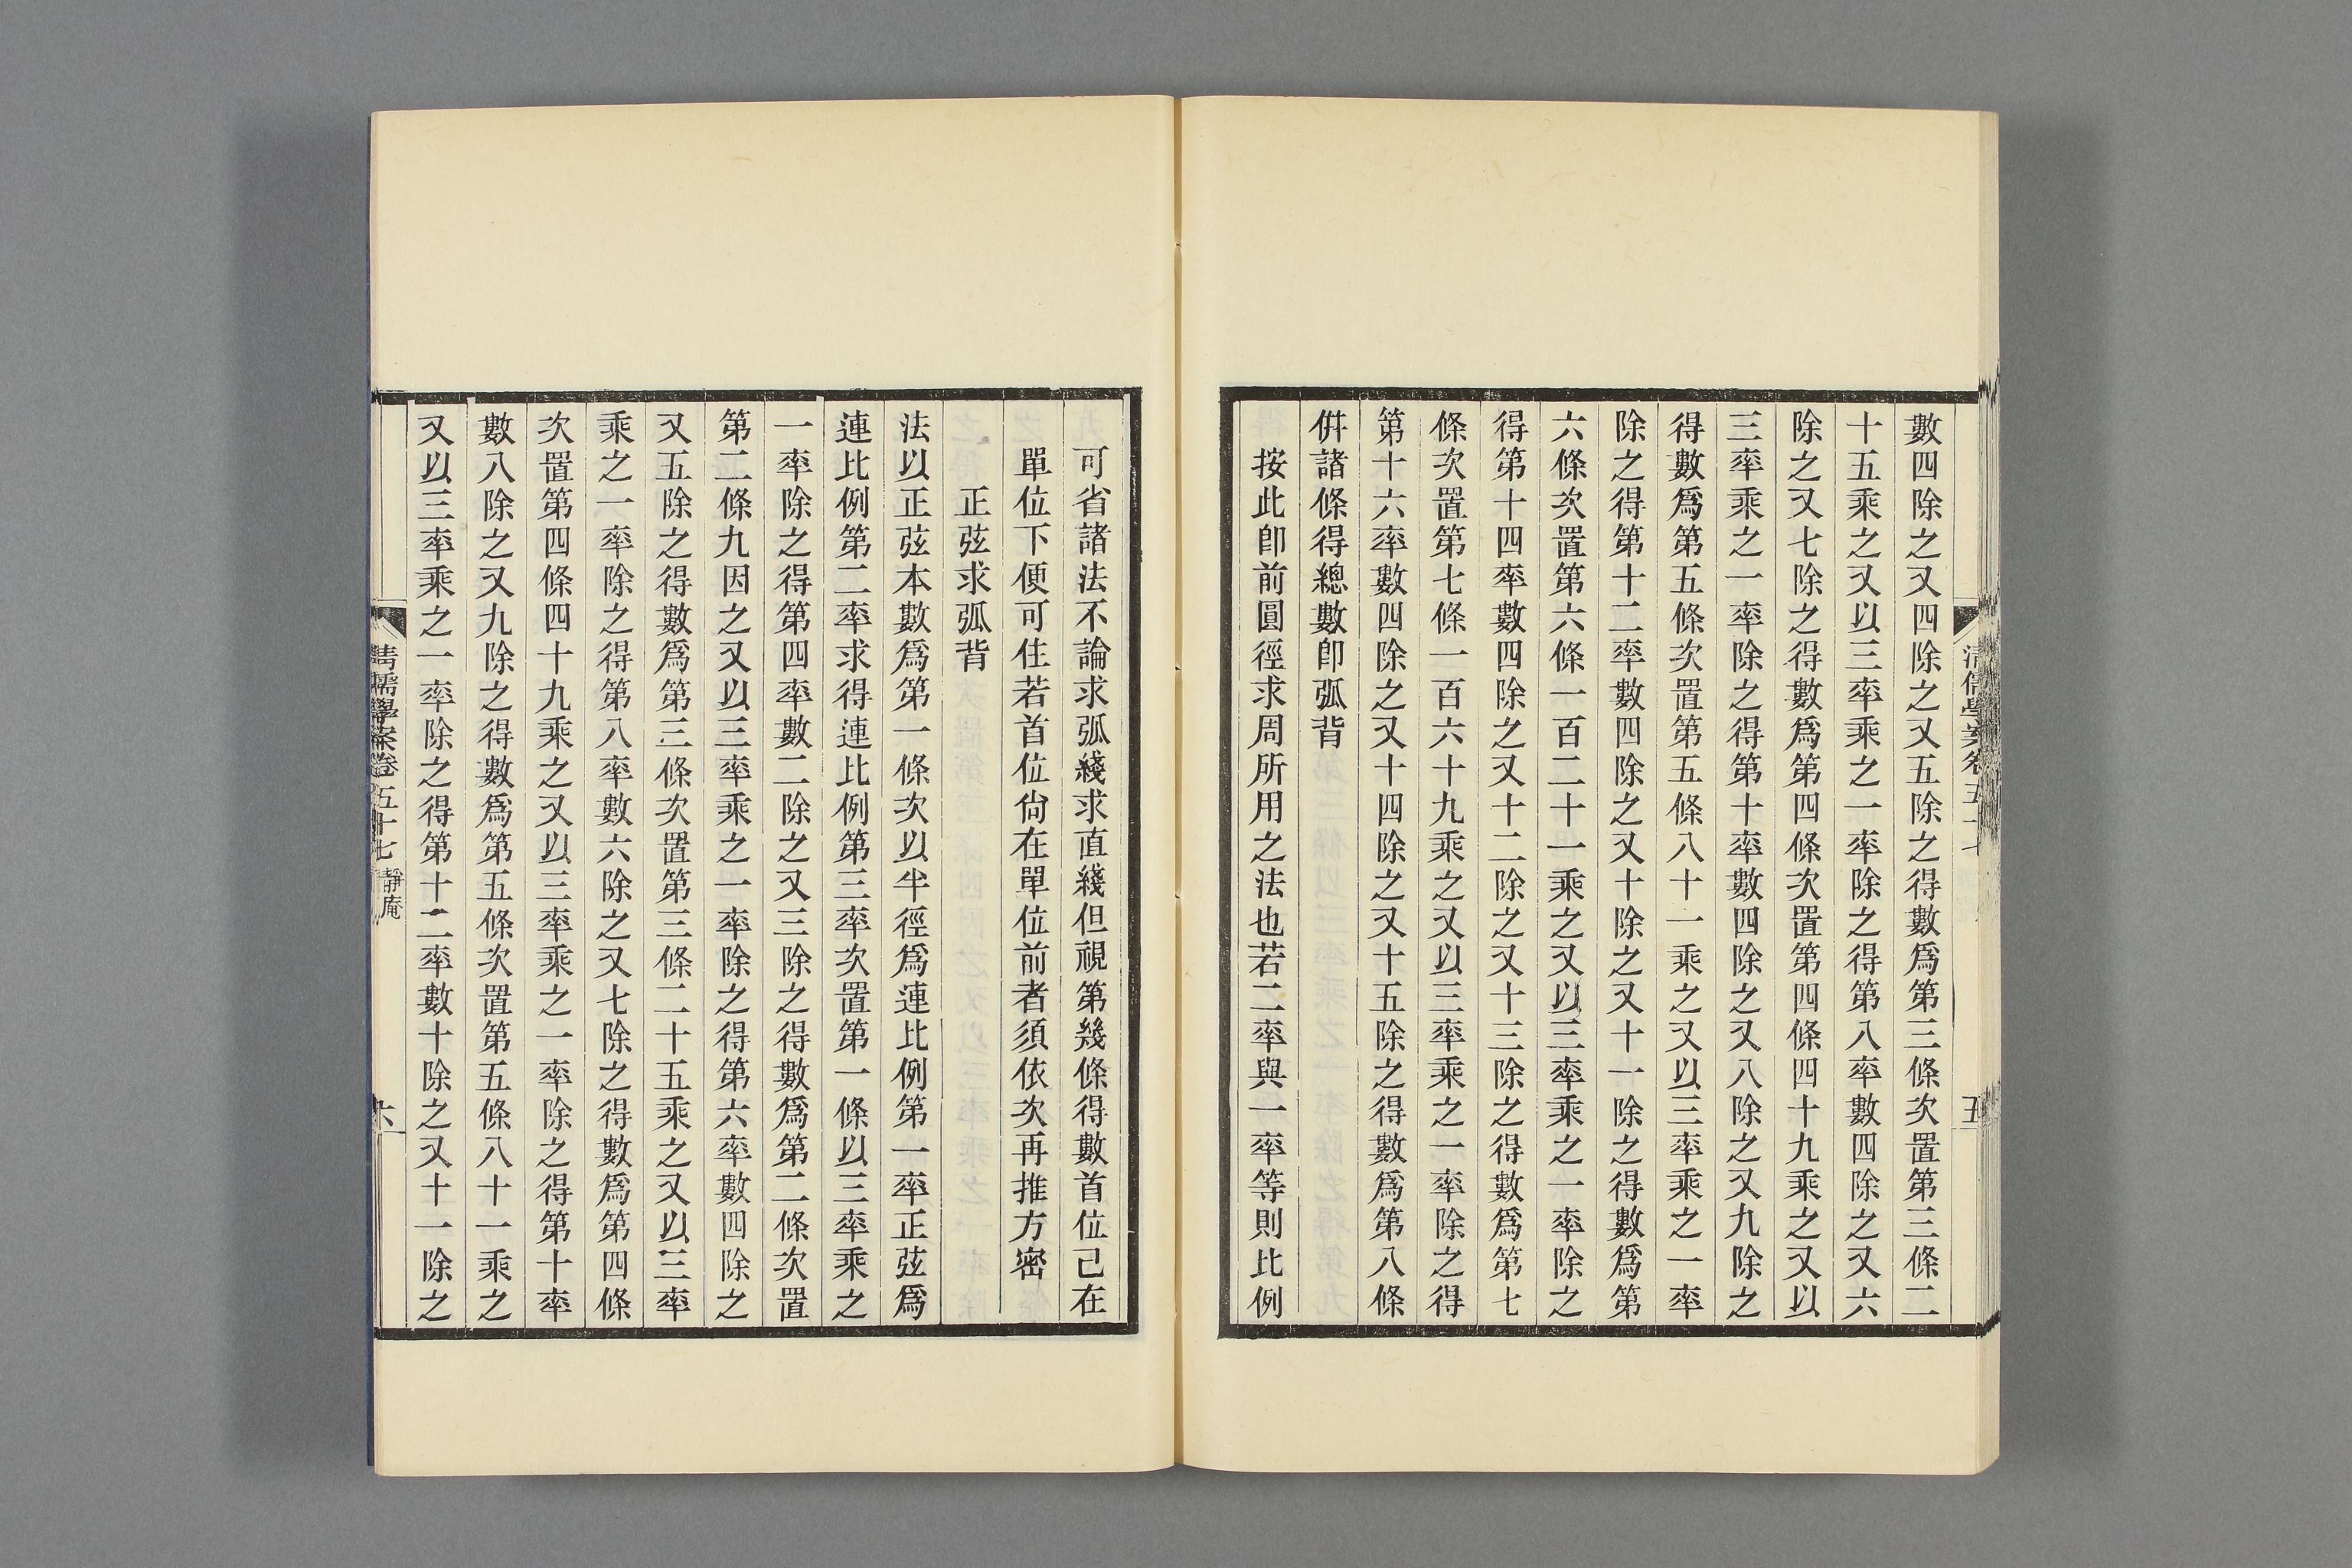 數四除之又四除之又五除之得數爲第三條次置第三條二
十五乘之又以三率乘之一率除之得第八率數四除之又六
除之又七除之得數爲第四條次置第四條四十九乘之又以
三率乘之一率除之得第十率數四除之又八除之又九除之
得數爲第五條次置第五條八十一乘之又以三率乘之一率
除之得第十二率數四除之又十除之又十一除之得數爲第
六條次置第六條一百二十一乘之又以三率乘之一率除之
得第十四率數四除之又十二除之又十三除之得數爲第七
條次置第七條一百六十九乘之又以三率乘之一率除之得
第十六率數四除之又十四除之又十五除之得數爲第八條
倂諸條得總數卽弧背
按此卽前圓徑求周所用之法也若二率與一率等則比例
五
可省諸法不論求弧綫求直綫但視第幾條得數首位已在
單位下便可住若首位尙在單位前者須依次再推方密
正弦求弧背
法以正弦本數爲第一條次以半徑爲連比例第一率正弦爲
連比例第二率求得連比例第三率次置第一條以三率乘之
一率除之得第四率數二除之又三除之得數爲第二條次置
第二條九因之又以三率乘之一率除之得第六率數四除之
又五除之得數爲第三條次置第三條二十五乘之又以三率
乘之一率除之得第八率數六除之又七除之得數爲第四條
次置第四條四十九乘之又以三率乘之一率除之得第十率
數八除之又九除之得數爲第五條次置第五條八十一乘之
又以三率乘之一率除之得第十二率數十除之又十一除之
清儒學案卷五十七 靜庵
六